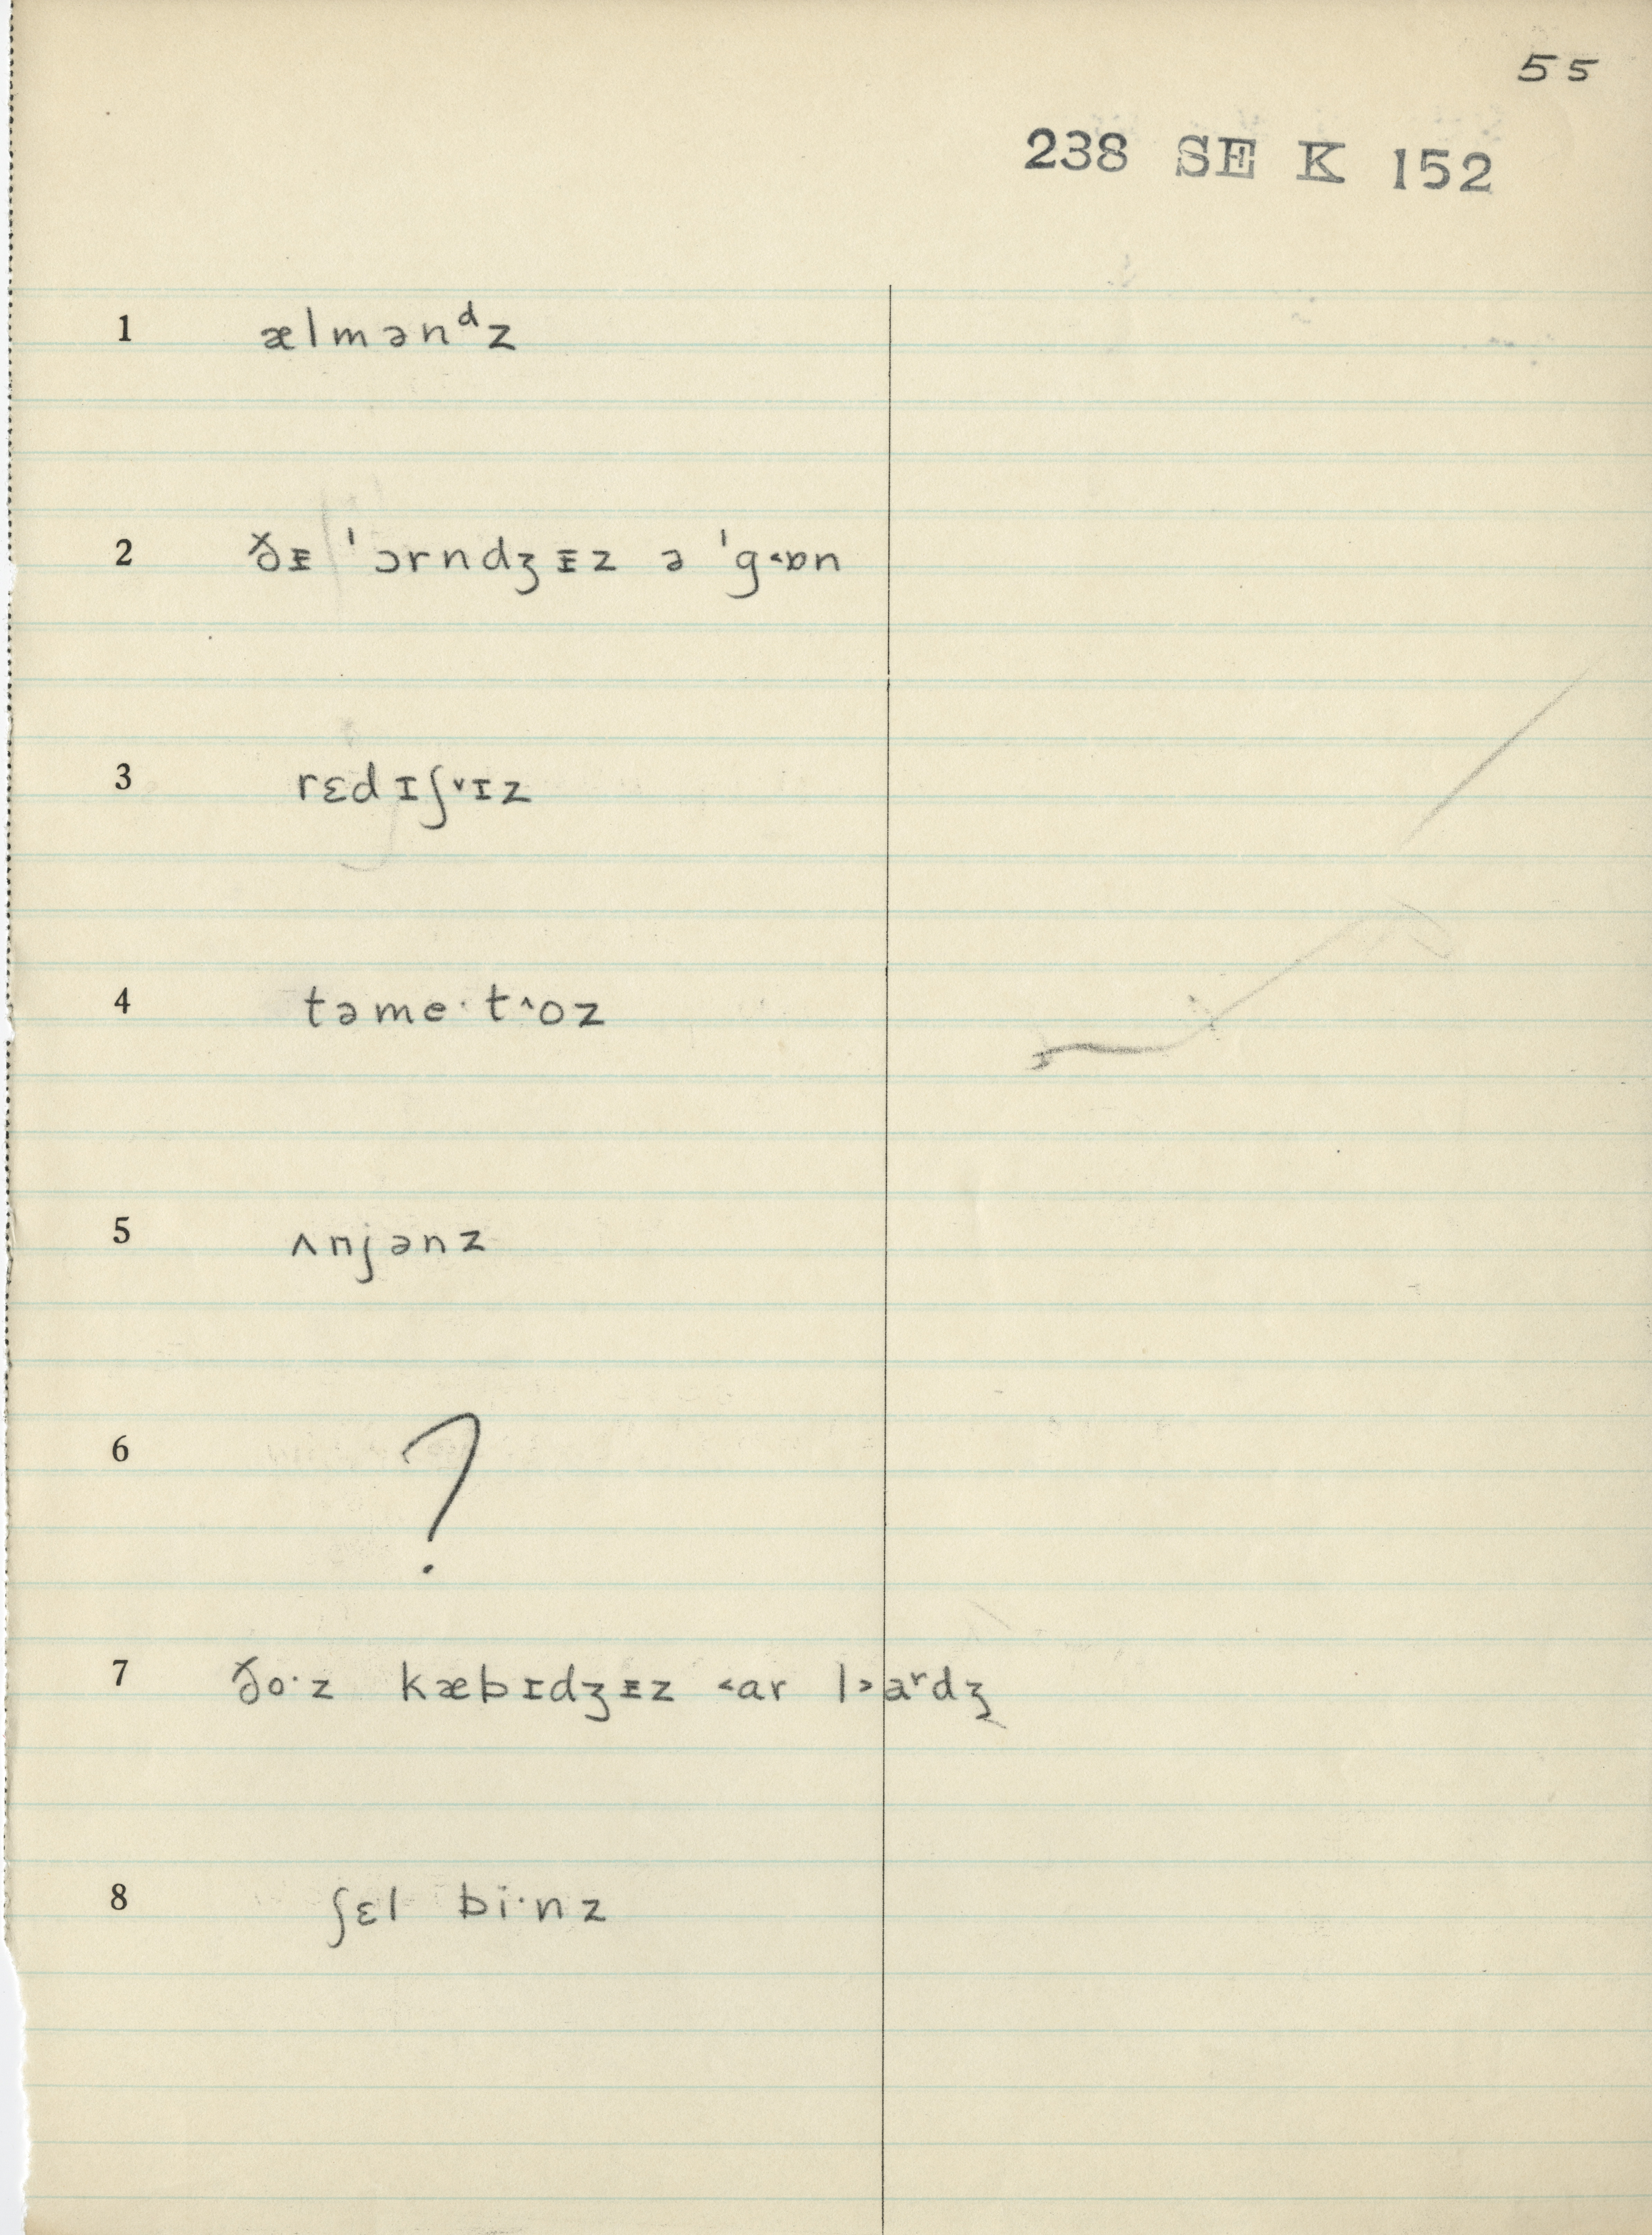 55
238 SE K 152
1 ælmənᵈz
2 ðᵻ ˈɔrndʒᵻz ə ˈg˂ɒn
3 rɛdɪʃ˅ɪz
4 təme·t˄oz
5 ʌnjənz
6 ?
7 ðo·z kæbɪdʒᵻz ˂ar l˃aʳdʒ
8 ʃɛl bi·nz